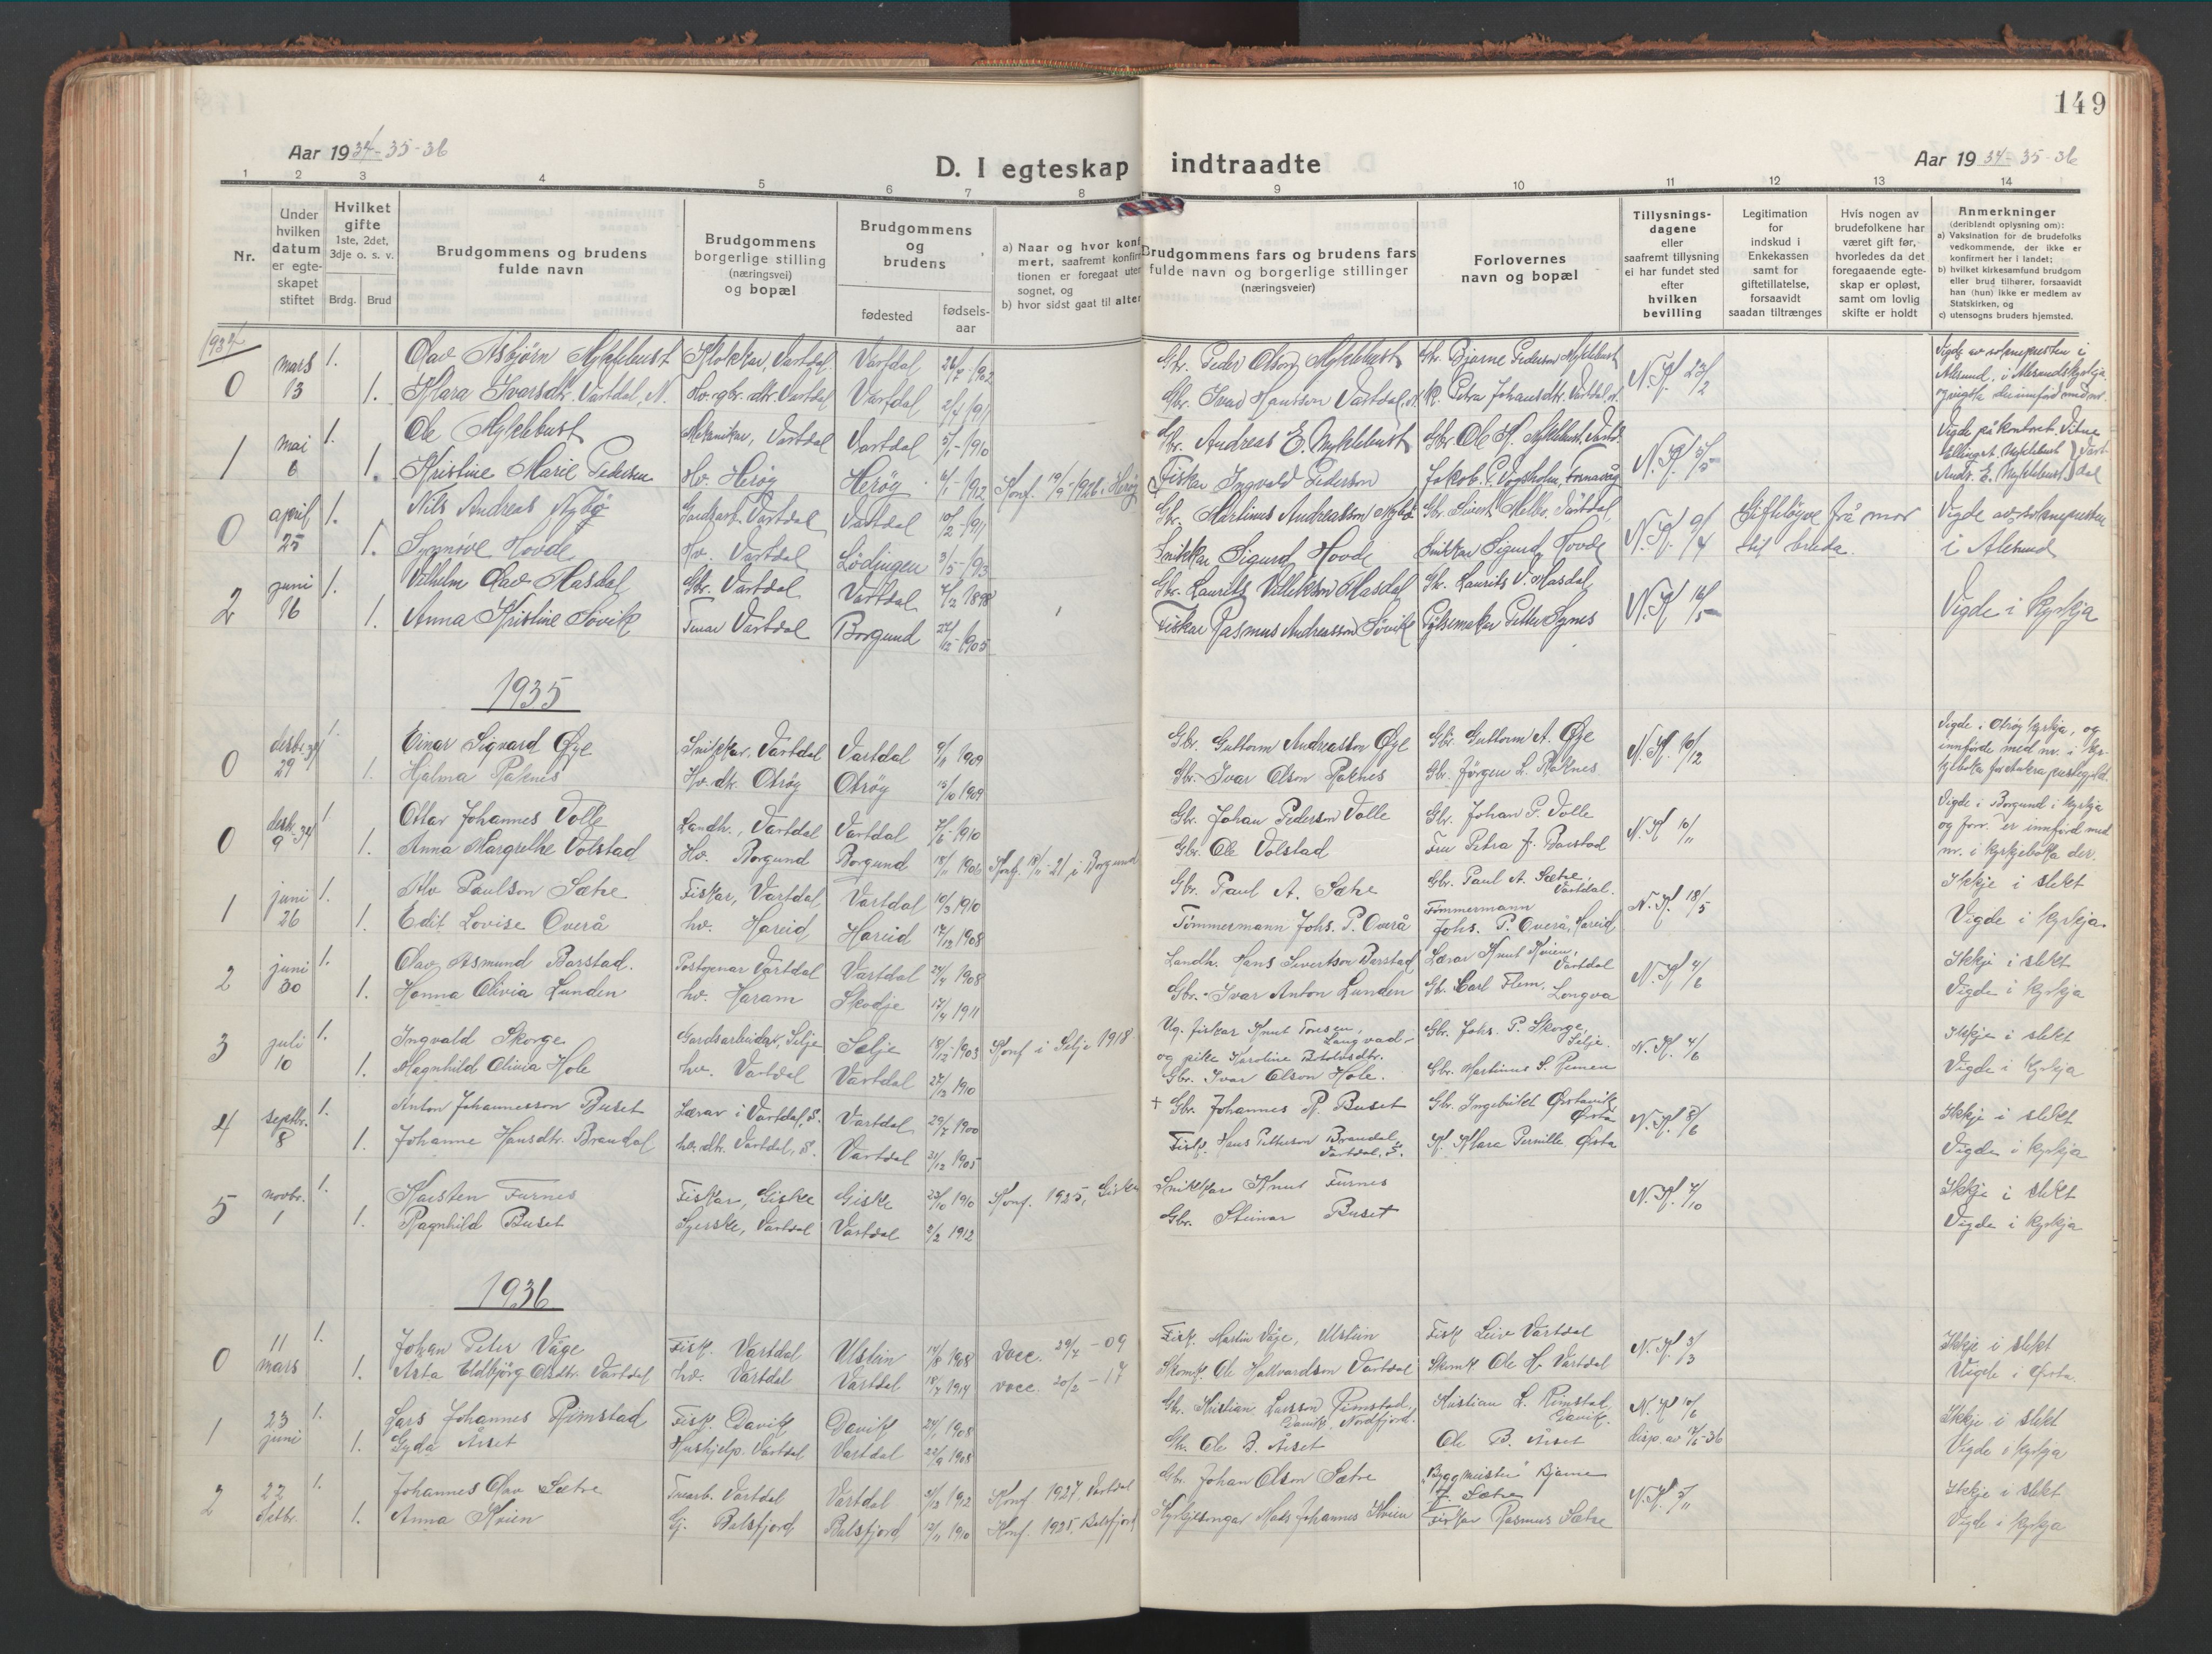 149
Aar 1934-35-36
D. I egteskap indtraadte
Aar 1934-35-36
1 2 3 4 5 6 7 8 9 10 11 12 13 14
Nr.
Under hvilken datum er egteskapet stiftet
Hvilket gifte 1ste, 2det, 3dje o. s. v.
Brdg. Brud
Brudgommens og brudens fulde navn
Brudgommens borgerlige stilling (næringsvei) og bopæl
Brudgommens og brudens
fødested
fødsels-aar
a) Naar og hvor konf
mert, saafremt konfir
tionen er foregaat uten
sognet, og
b) hvor sidst gaat til alter
Brudgommens fars og brudens fars fulde navn og borgerlige stillinger (næringsveier)
Forlovernes navn og bopæl
Tillysnings-dagene eller saafremt tillysning ei har fundet sted efter hvilken bevilling
Legitimation for indskud i Enkekassen samt for giftetillatelse, forsaavidt saadan tiltrænges
Hvis nogen av brudefolkene har været gift før, hvorledes da det foregaaende egteskap er opløst, samt om lovlig skifte er holdt
Anmerkninger
(deriblandt oplysning om):
a) Vaksination for de brudefolks vedkommende, der ikke er konfirmert her i landet;
b) hvilket kirkesamfund brudgom eller brud tilhører, forsaavidt han (hun) ikke er medlem av Statskirken, og
c) utensogns bruders hjemsted.
1934
0 mars 13 1. Olav Asbjörn Myklebust Klokkar, Vartdal Vartdal 1902 Gbr. Peder Olson Myklebust Gbr. Bjarne Pederson Myklebust N.K. 23/2 Vigde av soknepresten i
1. Klara Ivarsdtr. Vartdal, N. Hv. gbr. dtr. Vartdal Vartdal 2/4 1911 Gbr. Ivar Hansson Vartdal, N. K. Petra Johansdtr. Vartdal, N. Ålesund, i Ålesundskyrkja.
1 mai 6 1. Ole Myklebust Mekanikar, Vartdal Vartdal 5/1-1910 Gbr. Andreas E. Myklebust Gbr. Ole K. Myklebust, Vartd. Vigde på kontoret. Vitne
1. Kristine Marie Pedersen Hv. Herøy Herøy 1912 Konf. 1926 i Herøy Fiskar Ingvald Pederson Jakob P. Vågsholm, Fosnavåg Andr. E. Myklebust Vartdal
0 april 25 1. Nils Andreas Nybø Gardsarb. Vartdal Vartdal 10/2-1911 Gbr. Martinus Andreasson Nybø Gbr. Sivert Melbø. Vartdal N.K. 9/4 Gifteløyve frå mor Vigde av soknepresten
1. Synnöve Hovde Hv. Vartdal Lødingen 3/5-1913 Snikkar Sigurd Hovde Snikkar Sigurd Hovde til bruda. i Ålesund
2 juni 16 1. Vilhelm Olav Masdal Gbr. Vartdal Vartdal 7/12 1898 Gbr. Laurits Villekson Masdal Gbr. Laurits V. Masdal Vigde i kyrkja
1. Anna Kristine Søvik Vartdal Borgund 1905 Fiskar Rasmus Andreasson Søvik Pølsemakar Petter Synes
1935
0 desbr. 34 29 1. Einar Sigvard Øye Snikkar, Vartdal Vartdal 1909 Gbr. Guttorm Andreasson Øye Gbr. Guttorm A. Øye N.K. 10/12 Vigde i Otrøy kyrkja, og
1. Hjalma Raknes Hv. dtr. Otrøy Otrøy 1909 Gbr. Ivar Olson Raknes Gbr. Jørgen L. Raknes innførde med nr. i kyrkjeboka for Aukra prestegjeld.
0 desbr. 34 9 1. Ottar Johannes Volle Landh., Vartdal Vartdal 1910 Gbr. Johan Pederson Volle Gbr. Johan P. Volle N.K. 10/11 Vigde i Borgund i kyrkja
1. Anna Margrethe Volstad Hv. Borgund Borgund 1906 Konf. 21 i Borgund Gbr. Ole Volstad Fru Petra J. Barstad nr. i kyrkjeboka der.
1 juni 26 1. Alv Paulson Sætre Fiskar, Vartdal Vartdal 10/3 1910 Gbr. Paul A. Sætre Gbr. Paul A. Sætre, Vartdal. N.K. 18/5 Ikkje i slekt
1. Edit Lovise Overå hv. Hareid Hareid 17/12 1908 Tömmermann Johs. P. Overå Tømmermann Johs. P. Overå, Hareid Vigde i kyrkja.
2 juni 30 1. Olav Asmund Barstad. Postopnar Vartdal Vartdal 1908 Landh. Hans Sivertson Barstad Lærar Knut Kvien, Vartdal N.K. 4/6 Ikkje i slekt
1. Hanna Olivia Lunden hv. Haram Skodje 17/4 1911 Gbr. Ivar Anton Lunden Gbr. Carl Flem, Longva Vigde i kyrkja
3 juli 10 1. Ingvald Skorge Gardsarbeidar, Selje Selje 1903 Konf i Selje 1918 Ug. fiskar Knut Toresen, Langvad og pike Karoline Botolvsdtr. Gbr. Johs. P. Skorge, Selje. N.K. 4/6 Ikkje i slekt
1. Magnhild Olivia Hole hv. Vartdal Vartdal 27/3 1910 Gbr. Ivar Olson Hole. Gbr. Martinus S. Remen Vigde i kyrkja
4 septbr. 8 1. Anton Johannesson Buset Lærar i Vartdal, S. Vartdal 29/7 1900 + Gbr. Johannes R. Buset Gbr. Ingebrikt Ørstavik Ørsta N.K. 8/6 Ikkje i slekt
1. Johanne Hansdtr. Brandal hv. dtr. Vartdal, S. Vartdal 31/12 1905 Fisk. Hans Petterson Brandal, Vartdal, S. K. Klara Pernille Ørsta Vigde i kyrkja
5 novbr. 1 1. Karsten Furnes Fiskar, Giske Giske 1910 Konf. 1925, Giske Snikkar Knut Furnes N.K. 7/10 Ikkje i slekt
1. Ragnhild Buset Syerske, Vartdal Vartdal 2/2 1912 Gbr. Steinar Buset Vigde i kyrkja
1936
0 11 mars 1. Johan Peter Våge Fisk. Vartdal Ulstein 14/8 1908 vacc. 29/7-09 Fisk. Martin Våge, Ulstein Fisk Leiv Vartdal N.K. 3/3 Ikkje i slekt
1. Asta Eldbjörg Olsdtr. Vartdal hv. Vartdal Vartdal 1914 vacc. 20/2-17 Skomk. Ole Hallvardson Vartdal Skomk Ole H. Vartdal Vigde i Ørsta.
1 23 juni 1. Lars Johannes Rimstad Fisk. Davik Davik 24/1 1908 Gbr. Kristian Larsson Rimstad, Davik, Nordfjord. Kristian L. Rimstad, Davik. N.K. 10/6 Ikkje i slekt
1. Gyda Årset Hushjelp. Vartdal Vartdal 22/9 1908 Gbr. Ole B. Årset Ole B. Årset disp. av Vigde i kyrkja
2 22 1. Johannes Olav Sætre Trearb. Vartdal Vartdal 1912 Konf 1927, Vartdal Gbr. Johan Olson Sætre Byggmeister Bjarne J. Sætre N.K. Ikkje i slekt
1. Anna Kvien Balsfjord Balsfjord 12/11 1910 Konf. 1925, Balsfjord Kyrkjesongar Mads Johannes Kvien Fiskar Rasmus Sætre Vigde i kyrkja